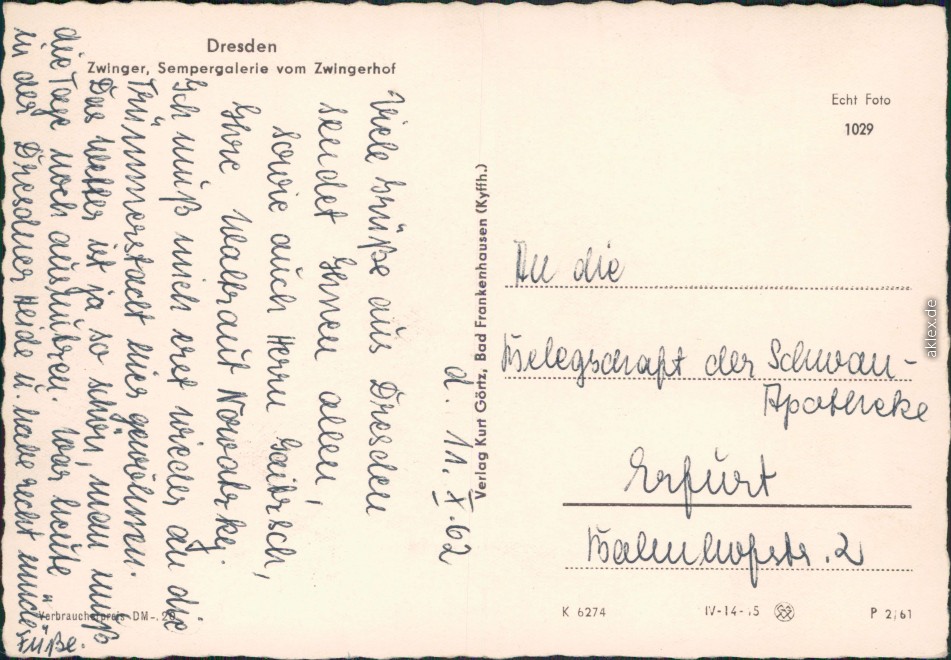 Dresden
Zwinger, Sempergalerie vom Zwingerhof
d. 11.X.62
Viele Grüße aus Dresden
sendet Ihnen allen,
sowie auch Herrn
Ihre Waltraut Nowatzky.
Ich muß mich erst wieder an die
Trümmerstadt hier gewöhnen.
Das Wetter ist ja so schön, man muß
die Tage noch ausnützen. War heute
in der Dresdner Heide u. habe recht müde
Füße.
Verbraucherpreis DM -.20
Verlag Kurt Görtz, Bad Frankenhausen (Kyffh.)
Echt Foto
1029
An die
Belegschaft der Schwan-
Apotheke
Erfurt
Bahnhofstr. 2
K 6274 IV-14-45 P 2/61
aklex.de